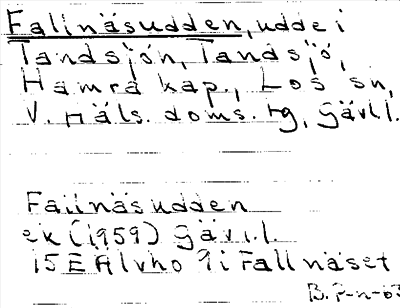 Fallnäsudden, udde i
Tandsjön, Tandsjö,
Hamra kap., Los sn,
V. Häls. doms. tg, Gävl.l.
Fallnäsudden
ek (1959) Gävl.l.
15E Älvho 9i Fallnäset